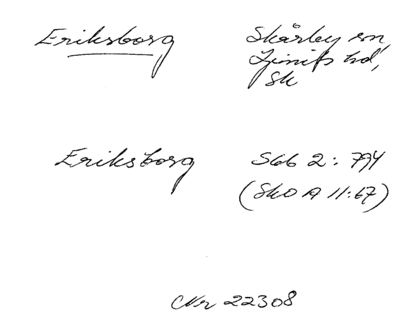 Eriksborg Skårby sn
Ljunits hd,
Sk
Eriksborg SGG 2: 794
(SkO A 11:67)
Nr 22308